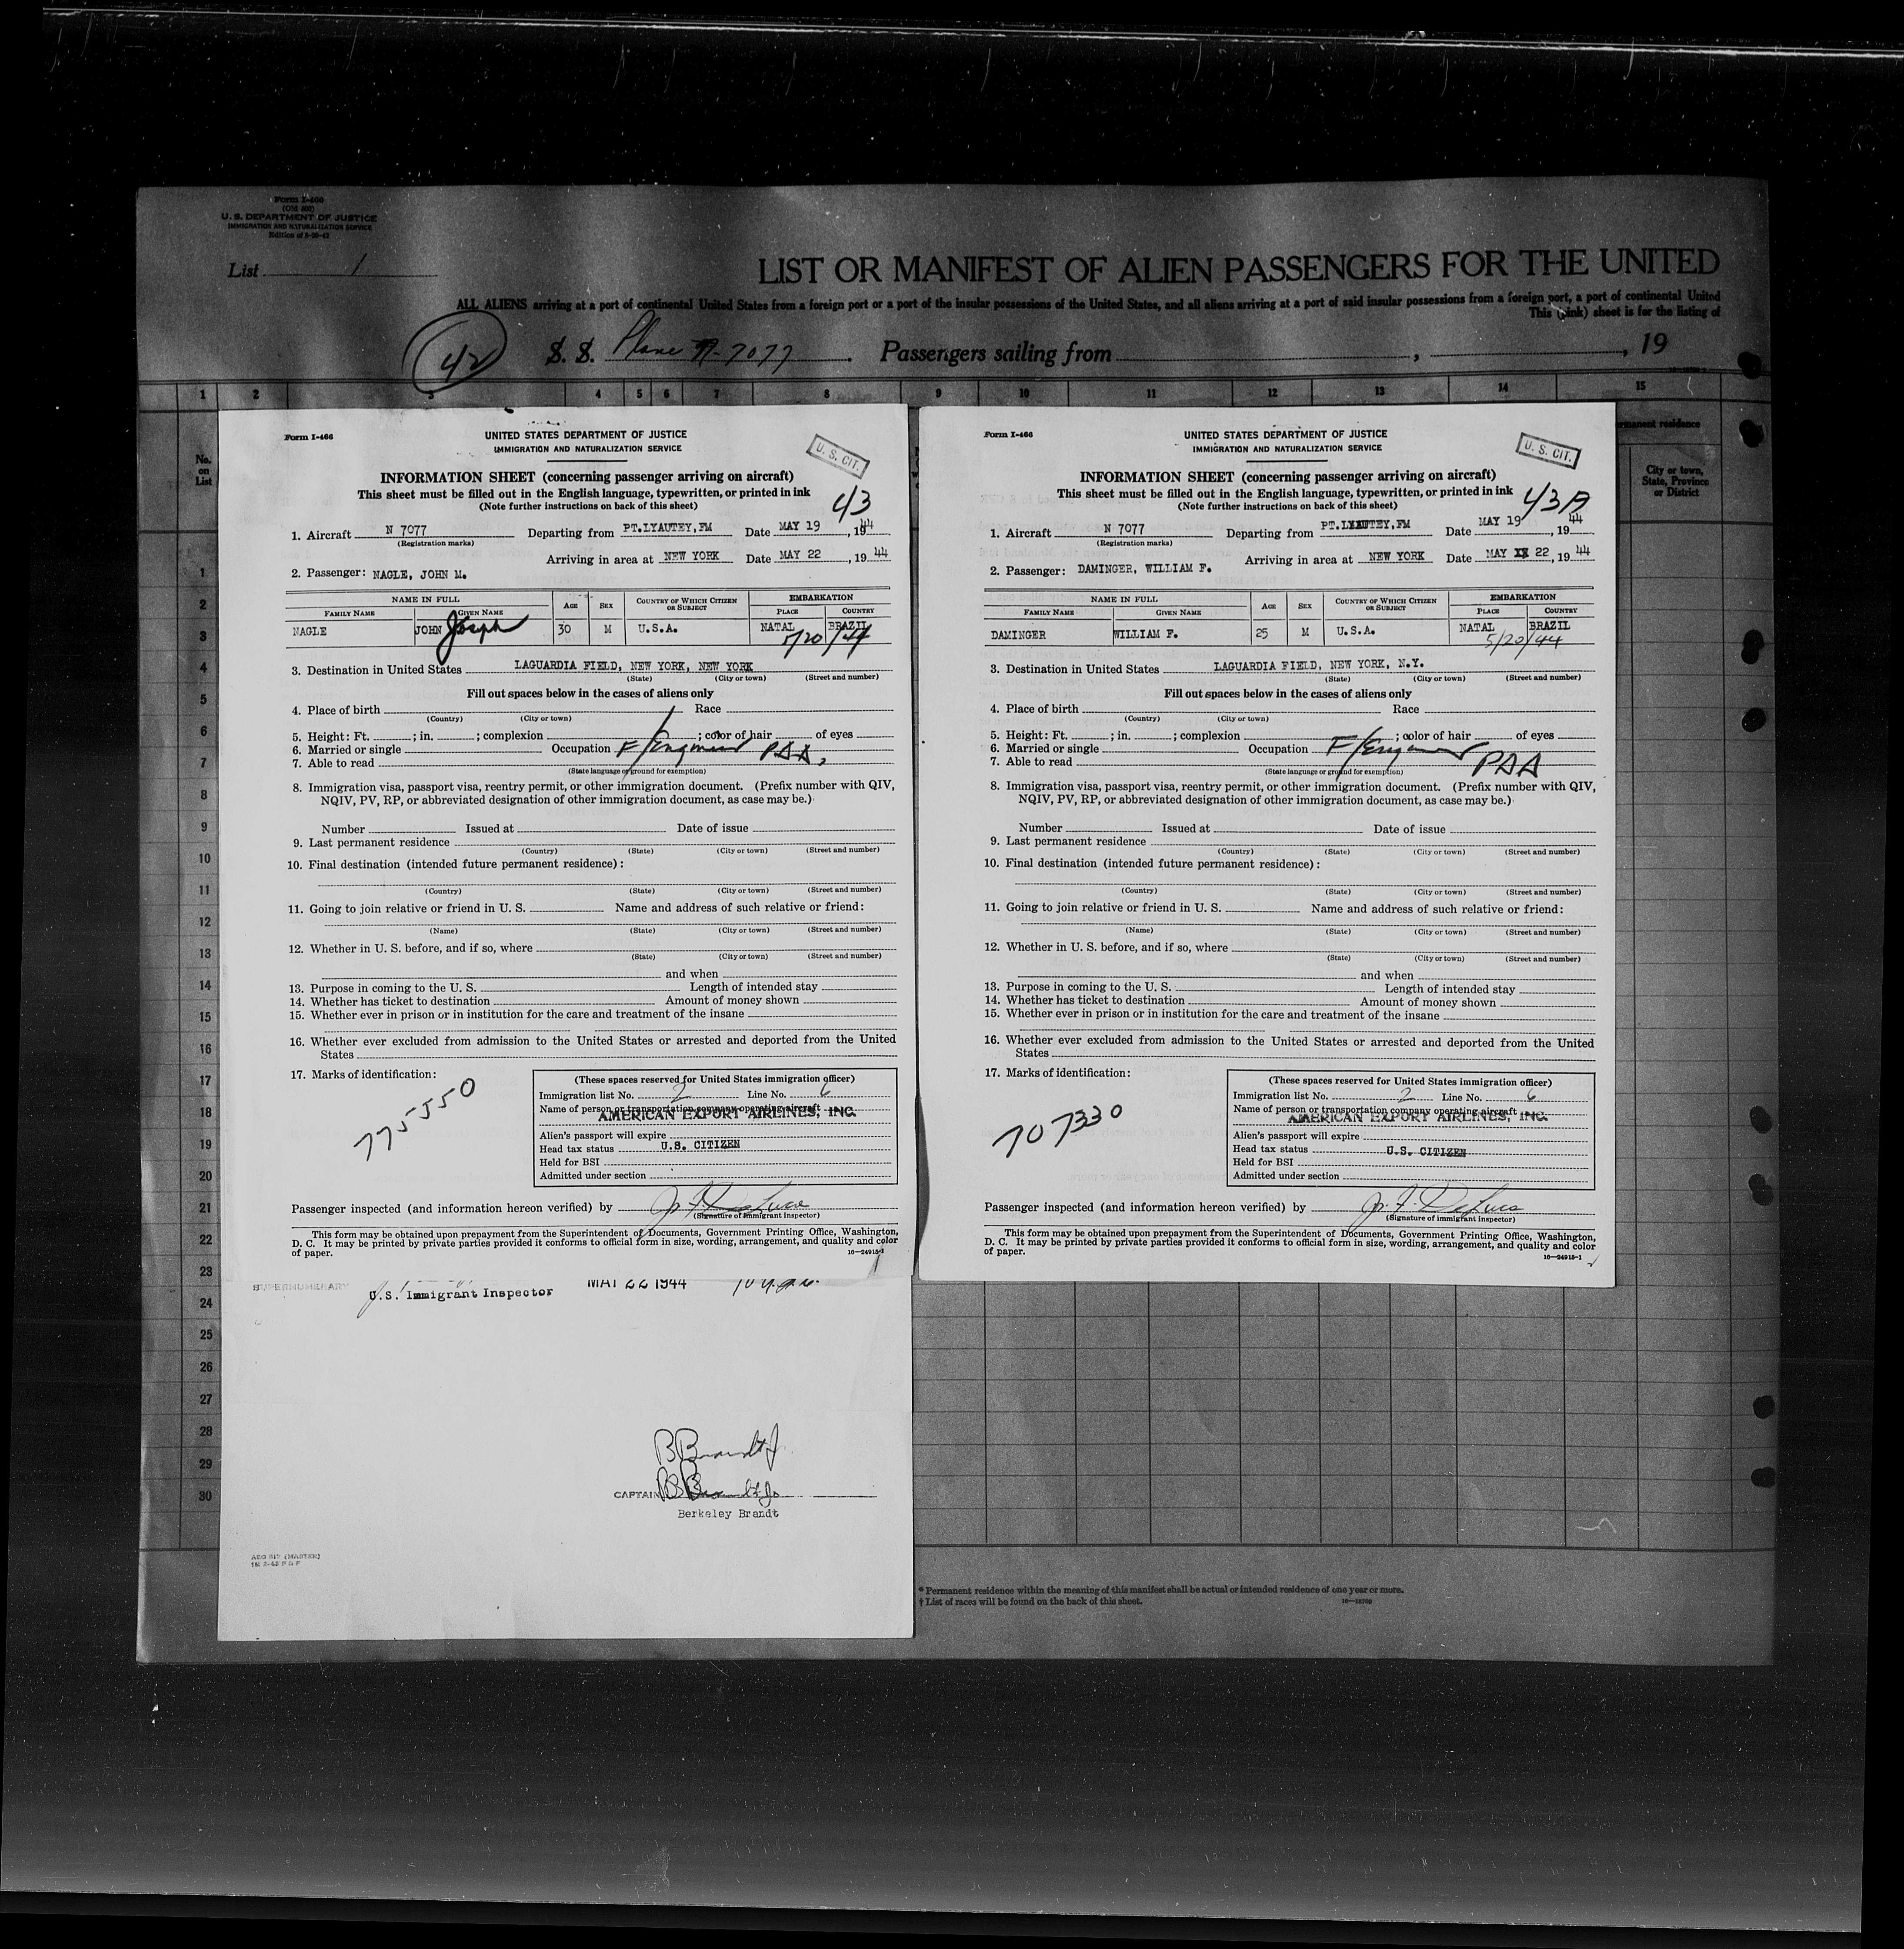 Form I-466
(Old 500)
U. S. DEPARTMENT OF JUSTICE
IMMIGRATION AND NATURALIZATION SERVICE
List 1
LIST OR MANIFEST OF ALIEN PASSENGERS FOR THE UNITED
ALL ALIENS arriving at a port of continental United States from a foreign port or a port of the insular possessions of the United States, and all aliens arriving at a port of said insular possessions from a foreign port, a port of continental United
This (pink) sheet is for the listing of
42 S. S. Plane N-7077. Passengers sailing from , , 19
1 2 3 4 5 6 7 8 9 10 11 12 13 14 15
No. on List
rmanent residence
City or town, State, Province or District
1
2
3
4
5
6
7
8
9
10
11
12
13
14
15
16
17
18
19
20
21
22
23
24
25
26
27
28
29
30
Form I-466
UNITED STATES DEPARTMENT OF JUSTICE
IMMIGRATION AND NATURALIZATION SERVICE
U. S. CIT.
INFORMATION SHEET (concerning passenger arriving on aircraft)
This sheet must be filled out in the English language, typewritten, or printed in ink
(Note further instructions on back of this sheet)
43
1. Aircraft N 7077 Departing from PT.LYAUTEY,FM Date MAY 19, 1944
(Registration marks)
Arriving in area at NEW YORK Date MAY 22, 1944
2. Passenger: NAGLE, JOHN M.
NAME IN FULL AGE SEX COUNTRY OF WHICH CITIZEN OR SUBJECT EMBARKATION
FAMILY NAME GIVEN NAME PLACE COUNTRY
NAGLE JOHN Joseph 30 M U.S.A. NATAL BRAZIL
5/20/44
3. Destination in United States LAGUARDIA FIELD, NEW YORK, NEW YORK
(State) (City or town) (Street and number)
Fill out spaces below in the cases of aliens only
4. Place of birth Race
(Country) (City or town)
5. Height: Ft. ; in. ; complexion ; color of hair of eyes
6. Married or single Occupation F/Engineer PAA,
7. Able to read
(State language or ground for exemption)
8. Immigration visa, passport visa, reentry permit, or other immigration document. (Prefix number with QIV,
NQIV, PV, RP, or abbreviated designation of other immigration document, as case may be.)
Number Issued at Date of issue
9. Last permanent residence
(Country) (State) (City or town) (Street and number)
10. Final destination (intended future permanent residence):
(Country) (State) (City or town) (Street and number)
11. Going to join relative or friend in U. S. Name and address of such relative or friend:
(Name) (State) (City or town) (Street and number)
12. Whether in U. S. before, and if so, where
(State) (City or town) (Street and number)
and when
13. Purpose in coming to the U. S. Length of intended stay
14. Whether has ticket to destination Amount of money shown
15. Whether ever in prison or in institution for the care and treatment of the insane
16. Whether ever excluded from admission to the United States or arrested and deported from the United
States
17. Marks of identification:
775550
(These spaces reserved for United States immigration officer)
Immigration list No. 2 Line No. 6
Name of person or transportation company operating aircraft
AMERICAN EXPORT AIRLINES, INC.
Alien's passport will expire
Head tax status U.S. CITIZEN
Held for BSI
Admitted under section
Passenger inspected (and information hereon verified) by
(Signature of immigrant inspector)
This form may be obtained upon prepayment from the Superintendent of Documents, Government Printing Office, Washington,
D. C. It may be printed by private parties provided it conforms to official form in size, wording, arrangement, and quality and color
of paper. 16—24915-1
SUPERNUMERARY
U.S. Immigrant Inspector MAY 22 1944
B Brandt Jr
CAPTAIN B Brandt Jr
Berkeley Brandt
Form I-466
UNITED STATES DEPARTMENT OF JUSTICE
IMMIGRATION AND NATURALIZATION SERVICE
U. S. CIT.
INFORMATION SHEET (concerning passenger arriving on aircraft)
This sheet must be filled out in the English language, typewritten, or printed in ink
(Note further instructions on back of this sheet)
43A
1. Aircraft N 7077 Departing from PT.LYAUTEY,FM Date MAY 19, 1944
(Registration marks)
Arriving in area at NEW YORK Date MAY XX 22, 1944
2. Passenger: DAMINGER, WILLIAM F.
NAME IN FULL AGE SEX COUNTRY OF WHICH CITIZEN OR SUBJECT EMBARKATION
FAMILY NAME GIVEN NAME PLACE COUNTRY
DAMINGER WILLIAM F. 25 M U.S.A. NATAL BRAZIL
5/20/44
3. Destination in United States LAGUARDIA FIELD, NEW YORK, N.Y.
(State) (City or town) (Street and number)
Fill out spaces below in the cases of aliens only
4. Place of birth Race
(Country) (City or town)
5. Height: Ft. ; in. ; complexion ; color of hair of eyes
6. Married or single Occupation F/Engineer PAA
7. Able to read
(State language or ground for exemption)
8. Immigration visa, passport visa, reentry permit, or other immigration document. (Prefix number with QIV,
NQIV, PV, RP, or abbreviated designation of other immigration document, as case may be.)
Number Issued at Date of issue
9. Last permanent residence
(Country) (State) (City or town) (Street and number)
10. Final destination (intended future permanent residence):
(Country) (State) (City or town) (Street and number)
11. Going to join relative or friend in U. S. Name and address of such relative or friend:
(Name) (State) (City or town) (Street and number)
12. Whether in U. S. before, and if so, where
(State) (City or town) (Street and number)
and when
13. Purpose in coming to the U. S. Length of intended stay
14. Whether has ticket to destination Amount of money shown
15. Whether ever in prison or in institution for the care and treatment of the insane
16. Whether ever excluded from admission to the United States or arrested and deported from the United
States
17. Marks of identification:
707330
(These spaces reserved for United States immigration officer)
Immigration list No. 2 Line No. 6
Name of person or transportation company operating aircraft
AMERICAN EXPORT AIRLINES, INC.
Alien's passport will expire
Head tax status U.S. CITIZEN
Held for BSI
Admitted under section
Passenger inspected (and information hereon verified) by
(Signature of immigrant inspector)
This form may be obtained upon prepayment from the Superintendent of Documents, Government Printing Office, Washington,
D. C. It may be printed by private parties provided it conforms to official form in size, wording, arrangement, and quality and color
of paper. 16—24915-1
* Permanent residence within the meaning of this manifest shall be actual or intended residence of one year or more.
† List of races will be found on the back of this sheet.